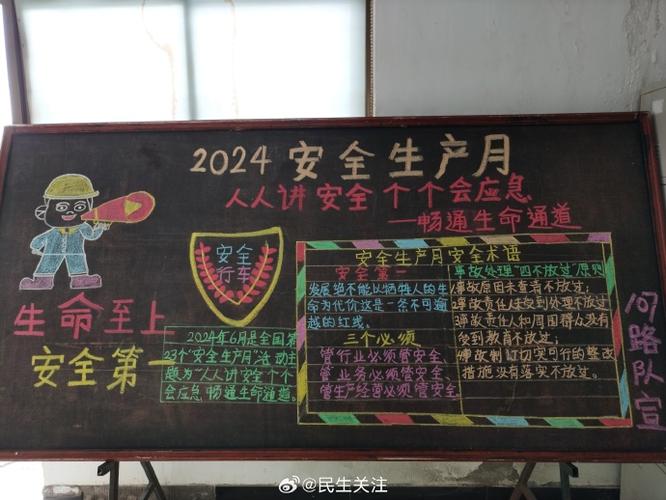 2024 安全生产月
人人讲安全 个个会应急
—畅通生命通道
安全
行车
生命至上
安全第一
2024年6月是全国第
23个"安全生产月"活动主
题为"人人讲安全 个个
会应急,畅通生命通道。
安全生产月安全术语
安全第一
发展绝不能以牺牲人的生
命为代价这是一条不可逾
越的红线。
三个必须
管行业必须管安全
管业务必须管安全
管生产经营必须管安全
事故处理"四不放过"原则
1事故原因未查清不放过
2事故责任人未受到处理不放过
3事故责任人和周围群众没有
受到教育不放过。
4事故制订切实可行的整改
措施没有落实不放过。
107路队宣
@民生关注